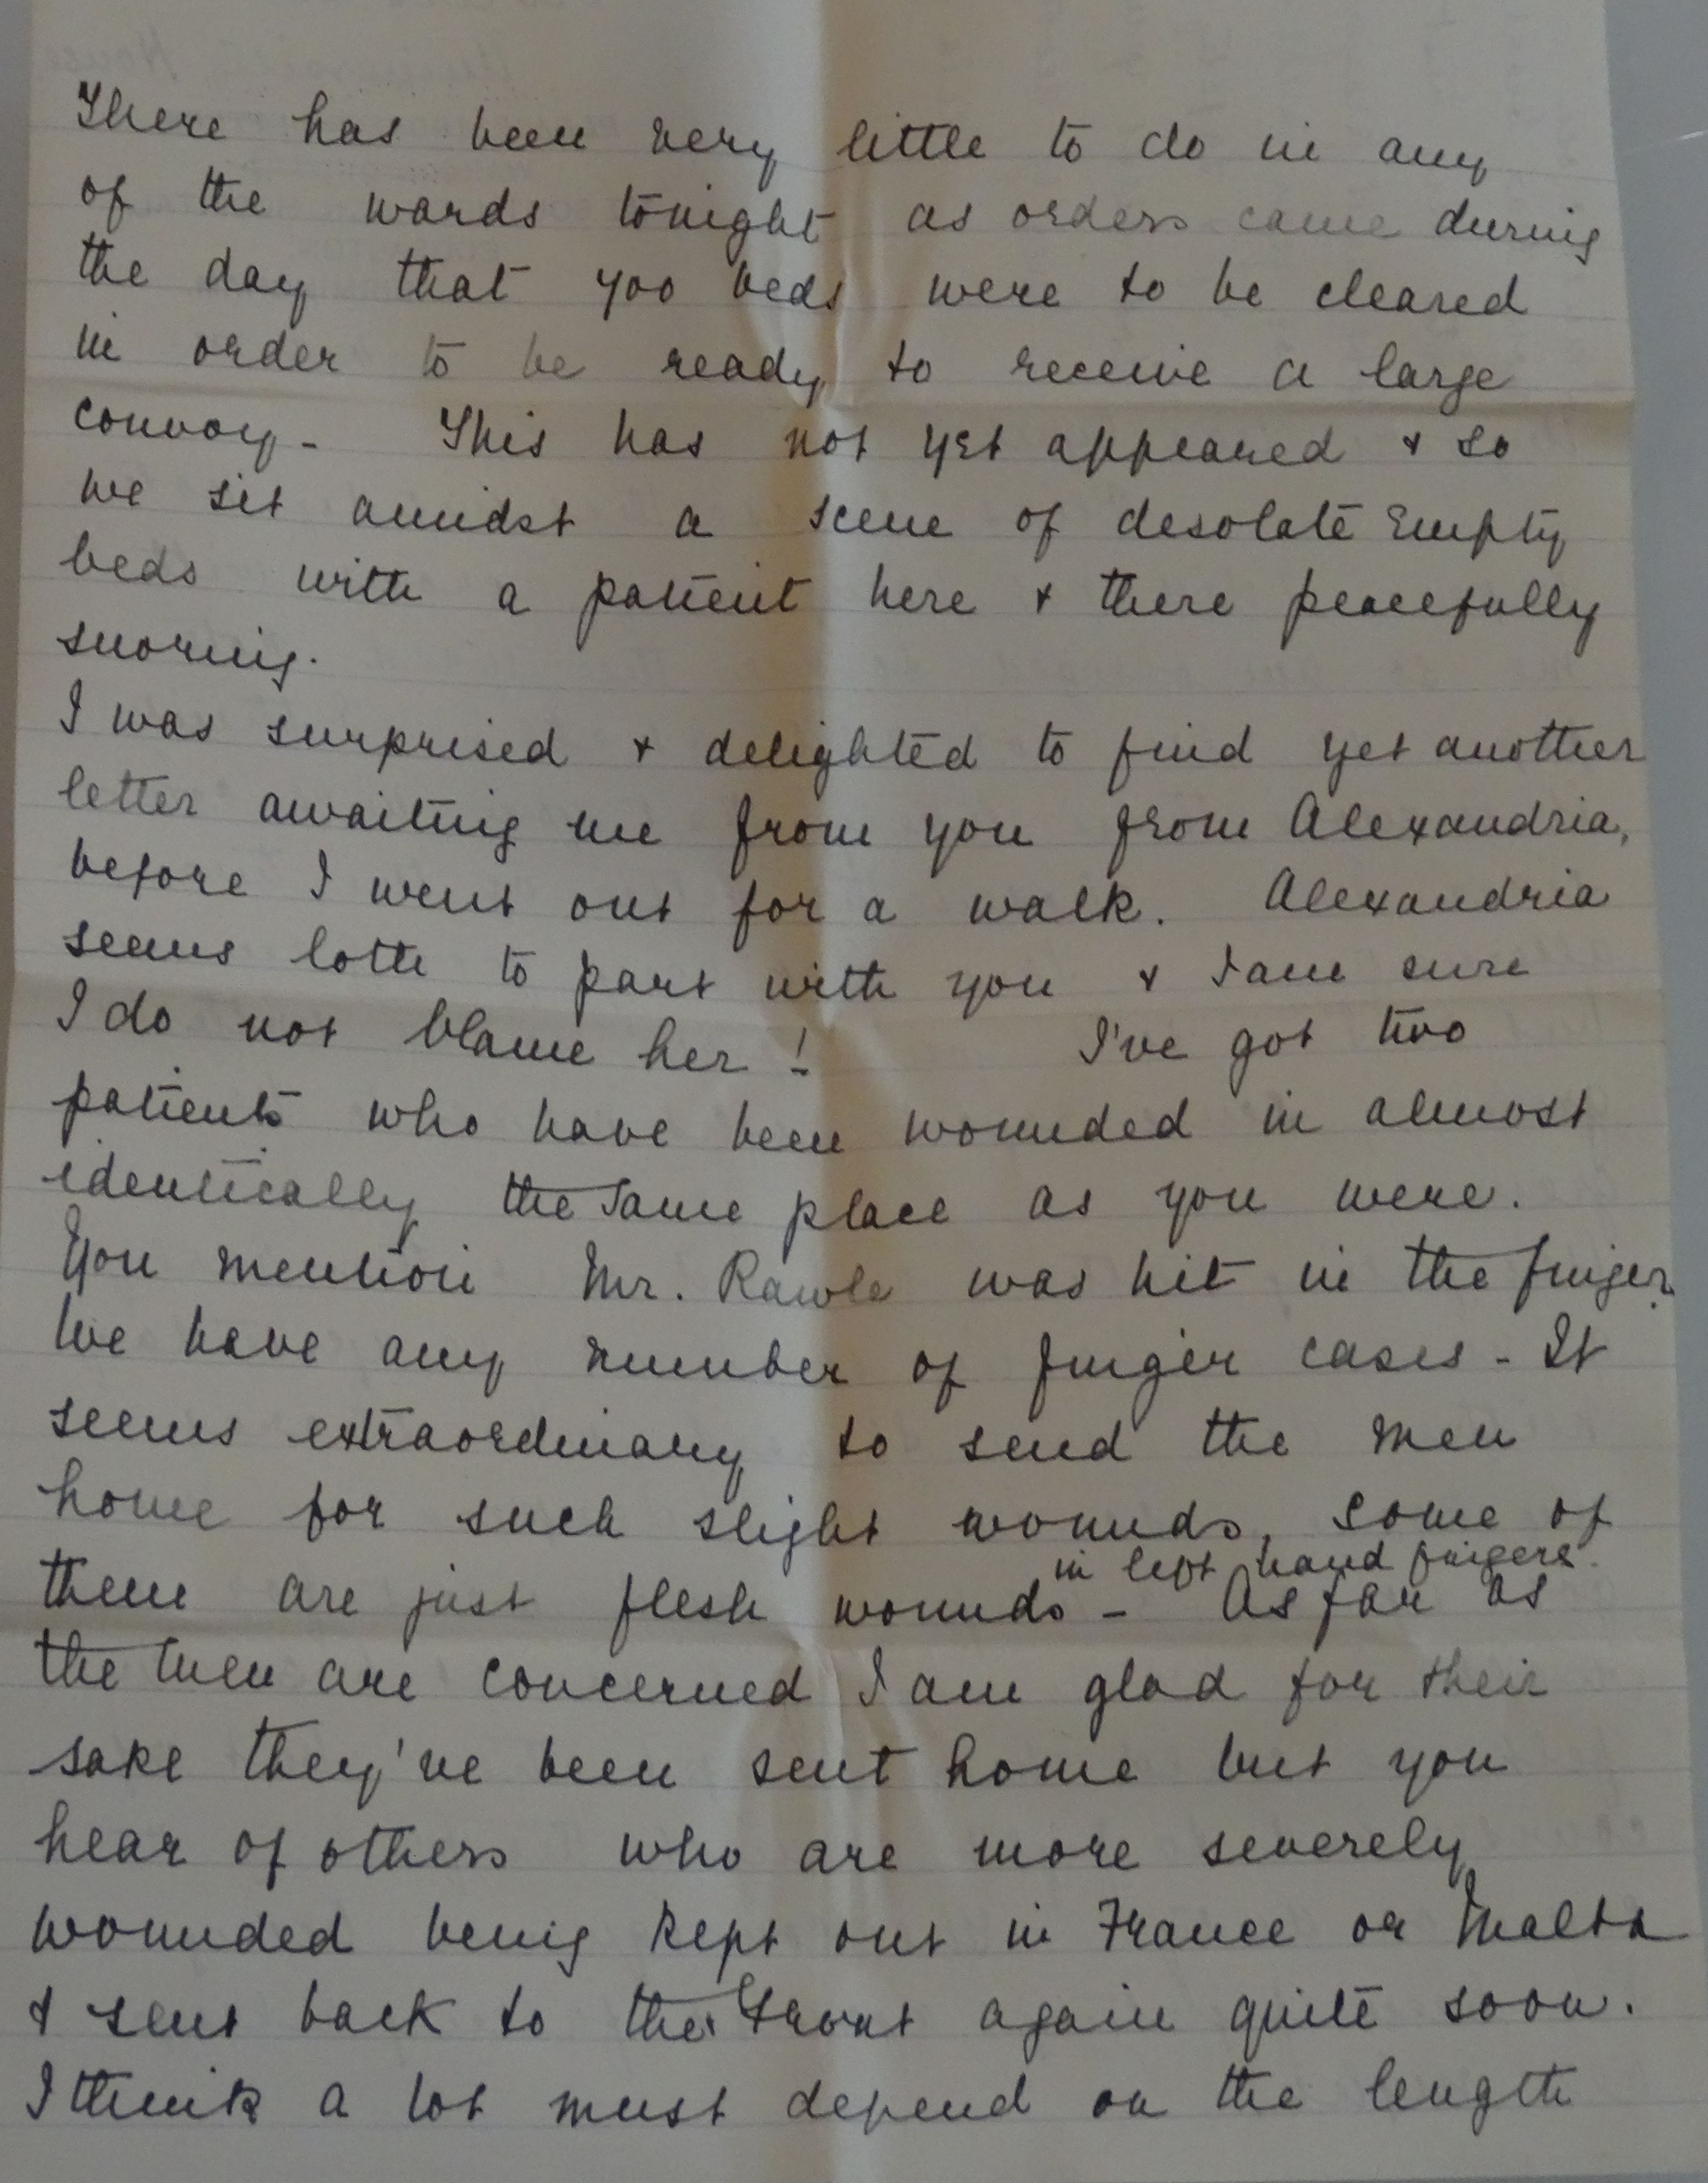 There has been very little to do in any
of the wards tonight as orders came during
the day that 700 beds were to be cleared
in order to be ready to receive a large
convoy - This has not yet appeared & so
we sit amidst a scene of desolate empty
beds with a patient here & there peacefully
snoring.
I was surprised & delighted to find yet another
letter awaiting me from you from Alexandria,
before I went out for a walk. Alexandria
seems loth to part with you & I am sure
I do not blame her! I've got two
patients who have been wounded in almost
identically the same place as you were.
You mention Mr. Rawle was hit in the finger.
We have any number of finger cases - It
seems extraordinary to send the men
home for such slight wounds, some of
in left hand fingers.
them are just flesh wounds - As far as
the men are concerned I am glad for their
sake they've been sent home but you
hear of others who are more severely
wounded being kept out in France or Malta
& sent back to the Front again quite soon.
I think a lot must depend on the length